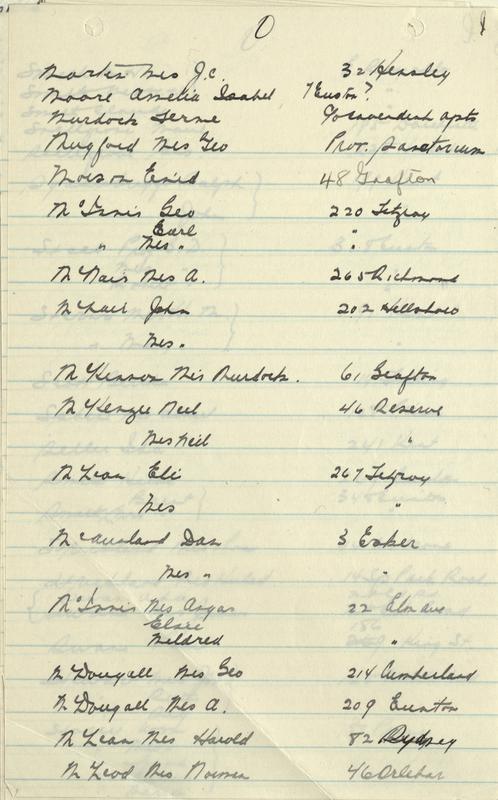 Martin Mrs J.C. 32 Hensley
Moore Amelia Isabel 7 Euston?
Murdock Prov. apts
Mugford Mrs Geo Prov. Sanatorium
Moison Enid 48 Grafton
McInnis Geo 220 Fitzroy
Earl
" Mrs " "
McNair Mrs A. 265 Richmond
John 202 Hillsboro
Mrs "
McKinnon Mrs Murdock. 61 Grafton
McKenzie Neil 46 Reserve
Mrs Neil "
McLean Eli 267 Fitzroy
Mrs "
McAusland Dan 3 Esher
Mrs " "
McInnis Mrs Angus 22 Elm ave
Elsie
Mildred "
McDougall Mrs Geo 214 Cumberland
McDougall Mrs A. 209 Euston
McLean Mrs Harold 82 Sydney
McLeod Mrs Norman 46 Orlebar